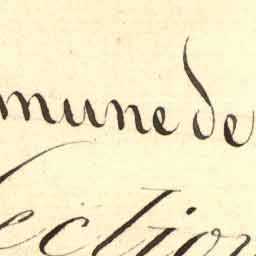 mune de
ection